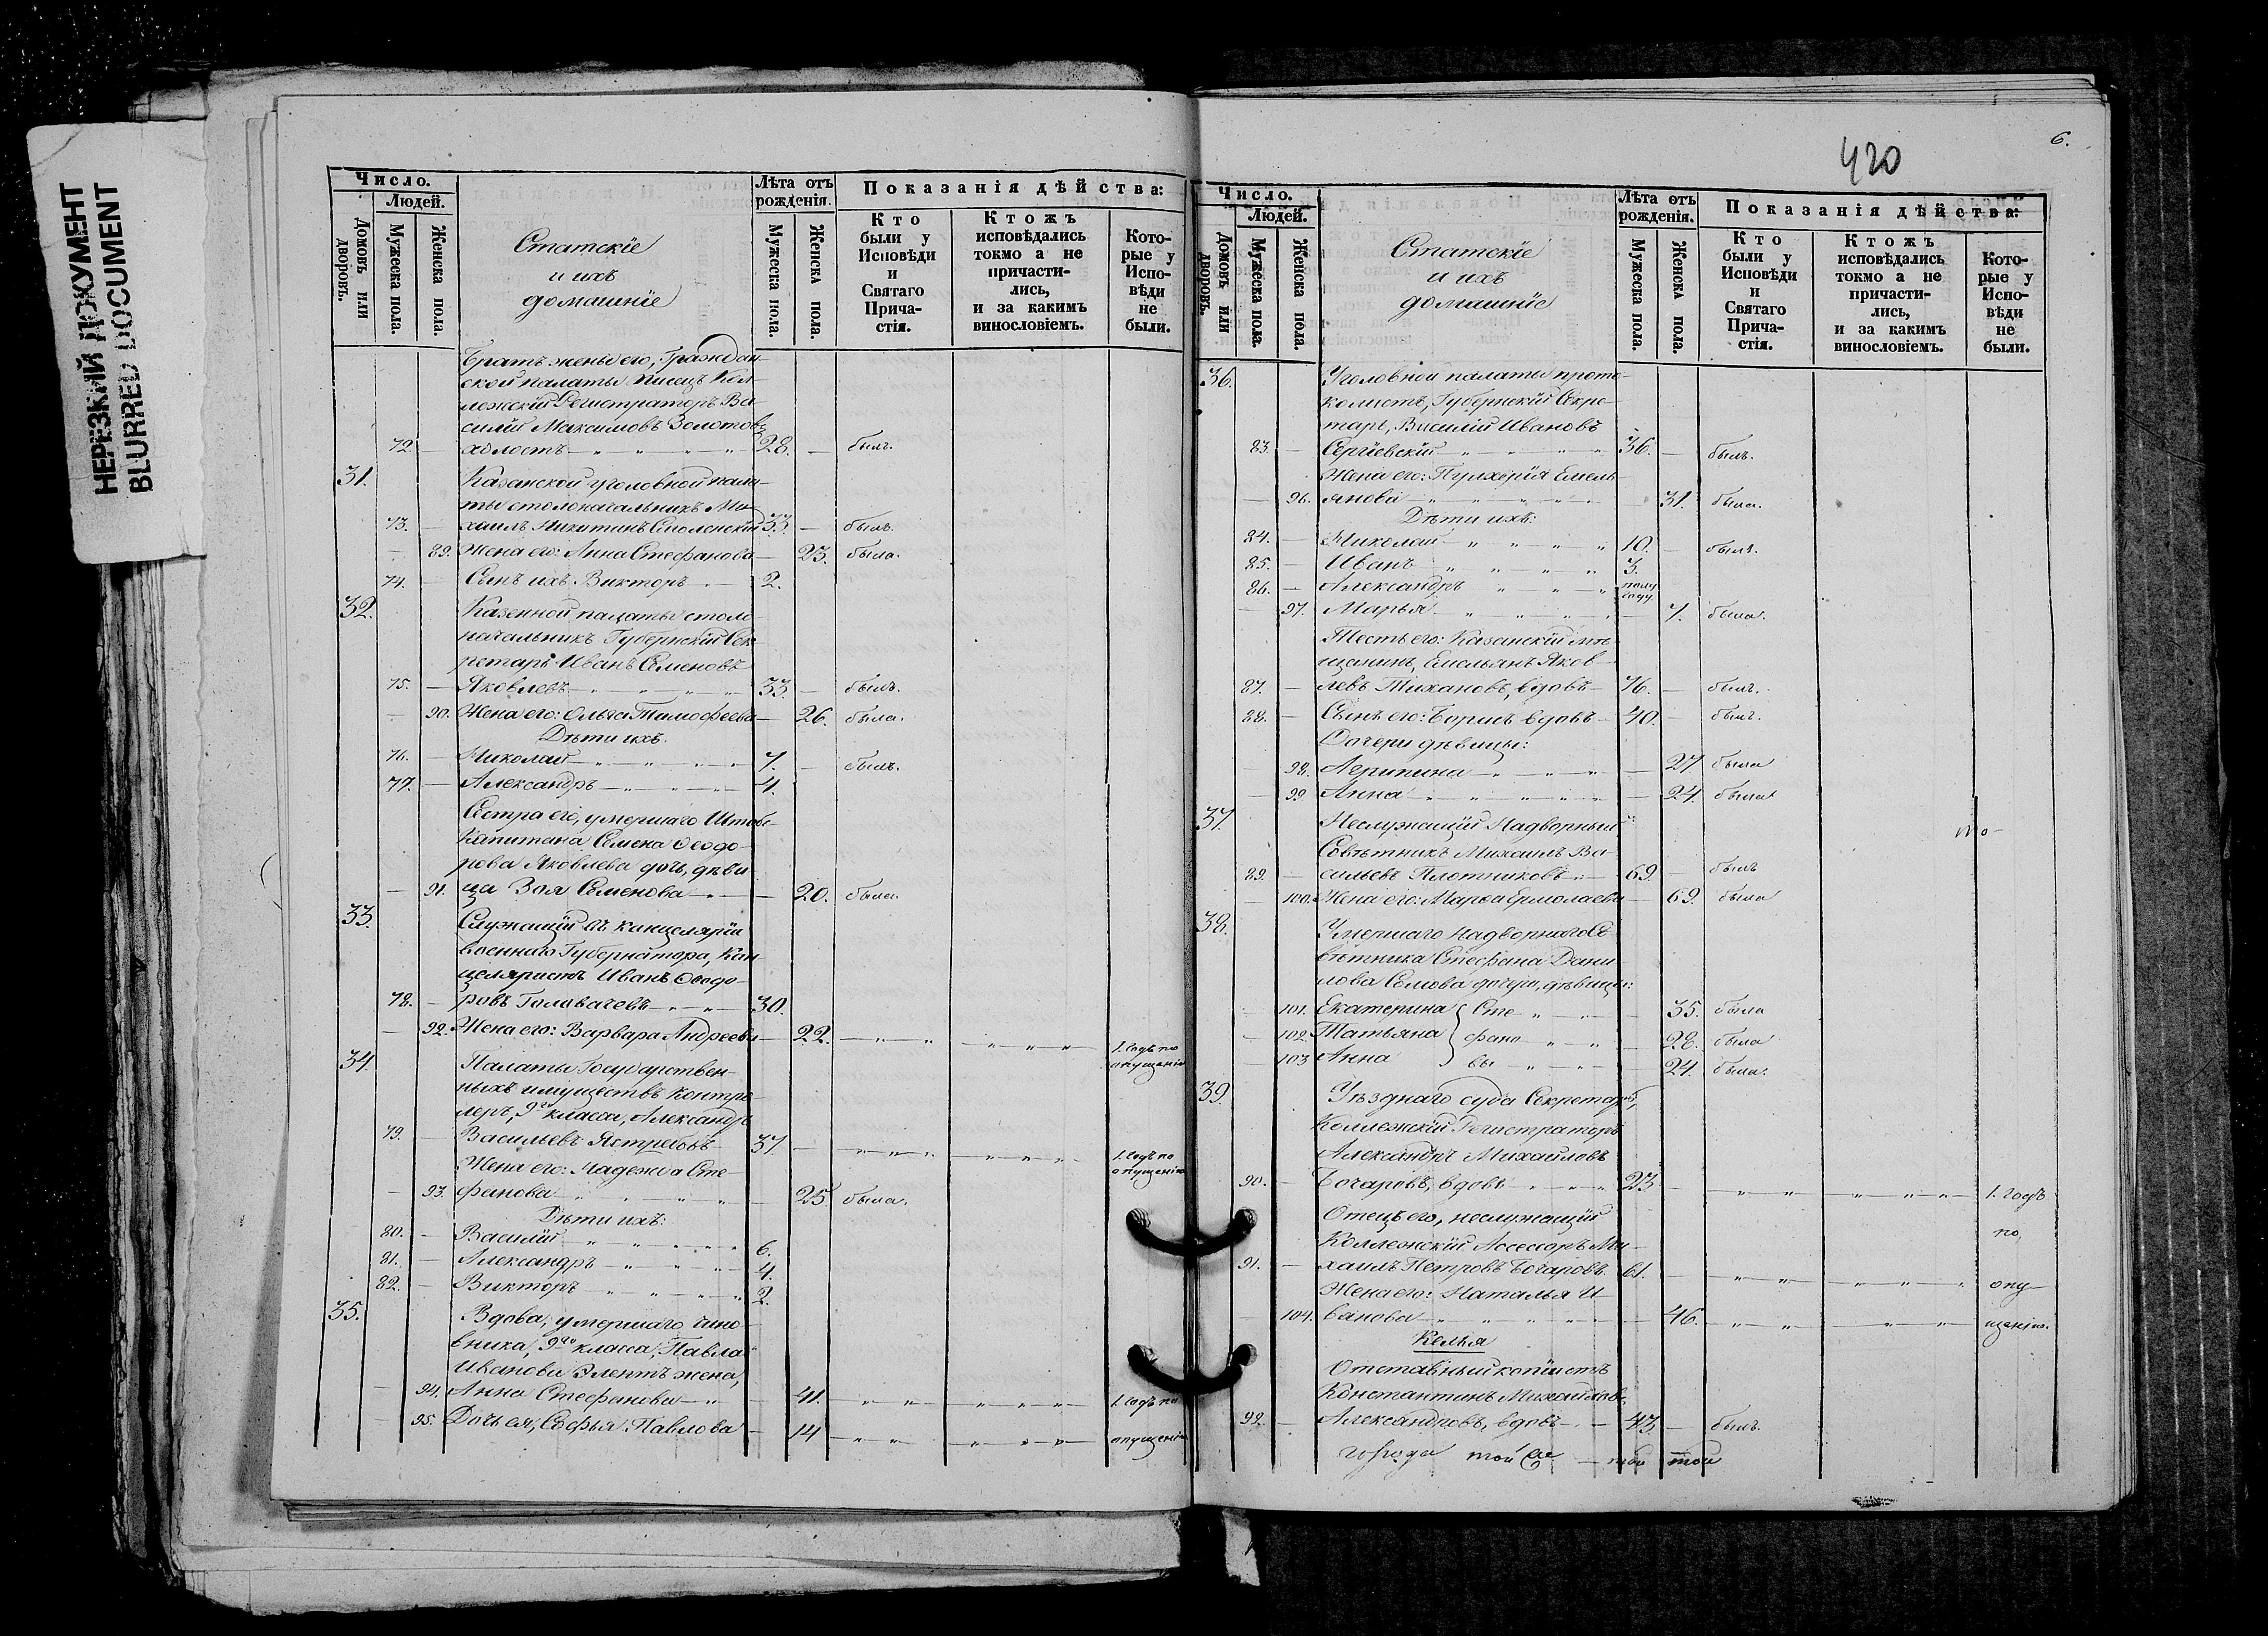 НЕРЕЗКИЙ ДОКУМЕНТ
BLURRED DOCUMENT
Число.
Людей.
Домовъ или дворовъ.
Мужеска пола.
Женска пола.
Статскіе
и ихъ
домашніе
Лѣта отъ рожденія.
Мужеска пола.
Женска пола.
Показанія дѣйства:
Кто были у Исповѣди и Святаго Причастія.
Ктожъ исповѣдались токмо а не причастились, и за какимъ винословіемъ.
Которые у Исповѣди не были.
Братъ жены его, Граждан-
ской палаты писецъ Кол-
лежскій Регистраторъ Ва-
силій Максимовъ Золотовъ
72. — холостъ 28. — былъ.
31. Казанской уголовной пала-
ты столоначальникъ Ми-
73. — хаилъ Никитинъ Смоленскій 33 — былъ.
— 89. Жена его: Анна Стефанова — 23. была.
74. — Сынъ ихъ Викторъ — 2.
32. Казенной палаты столо-
начальникъ Губернскій Сек-
ретарь Иванъ Семеновъ
75. — Яковлевъ 33 — былъ.
— 90. Жена его: Ольга Тимофеева — 26. была.
Дѣти ихъ.
76. — Николай 7. — былъ.
77. — Александръ 4.
Сестра его, умершаго Штабс-
Капитана Семена Ѳеодо-
рова Яковлева дочь, дѣви-
— 91. ца Зоя Семенова — 20. была.
33. Служащій въ канцеляріи
военнаго Губернатора, Кан-
целяристъ Иванъ Ѳеодо-
78. — ровъ Головачевъ 30.
— 92. Жена его: Варвара Андреева — 22. 1. годъ по
опущенію
34. Палаты Государствен-
ныхъ имуществъ Контро-
леръ, 9го класса, Александръ
79. — Васильевъ Ястребовъ 37. — 1. годъ по
опущенію
Жена его: Надежда Сте-
— 93. фанова — 25. была.
Дѣти ихъ:
80. — Василій 6.
81. — Александръ 4.
82. — Викторъ 2.
35. Вдова, умершаго чино-
вника, 9го класса, Павла
Иванова Элентъ жена,
— 94. Анна Стефанова — 41. 1. годъ по
— 95. Дочь ея, Софья Павлова — 14 опущенію
6.
420
Число.
Людей.
Домовъ или дворовъ.
Мужеска пола.
Женска пола.
Статскіе
и ихъ
домашніе
Лѣта отъ рожденія.
Мужеска пола.
Женска пола.
Показанія дѣйства:
Кто были у Исповѣди и Святаго Причастія.
Ктожъ исповѣдались токмо а не причастились, и за какимъ винословіемъ.
Которые у Исповѣди не были.
36. Уголовной палаты прото-
колистъ, Губернскій Секре-
тарь, Василій Ивановъ
83. — Сергіевскій 36. — былъ.
Жена его: Пулхерія Емель-
— 96. янова — 31. была.
Дѣти ихъ:
84. — Николай 10. — былъ.
85. — Иванъ 3.
86. — Александръ полу
году
— 97. Марья — 7. была.
Тесть его: Казанскій мѣ-
щанинъ, Емельянъ Яков-
87. — левъ Тихановъ, вдовъ 76. — былъ.
88. — Сынъ его: Борисъ вдовъ 40. — былъ.
Дочери дѣвицы:
98. — 27 была
99. Анна — 24. была
37. Неслужащій Надворный
Совѣтникъ Михаилъ Ва-
89. — сильевъ Плотниковъ 69. — былъ
— 100. Жена его: Марѳа Ермолаева — 69. была
38. Умершаго Надворнаго Со-
вѣтника Стефана Дани-
лова Сомова дочери, дѣвицы:
— 101. Екатерина Сте — 35. была
— 102. Татьяна фано — 28. была
103 Анна вы — 24. была.
39. Уѣзднаго суда Секретарь,
Коллежскій Регистраторъ
Александръ Михайловъ
90. — Бочаровъ, вдовъ 23 — 1. годъ
Отецъ его, неслужащій
по
Коллежскій Ассессоръ Ми-
91. — хаилъ Петровъ Бочаровъ. 61. — опу-
Жена его: Наталья И-
— 104. ванова — 46. щенію.
Келья
Отставный копіистъ
Константинъ Михайловъ
92. — Александровъ, вдовъ 43 — былъ.